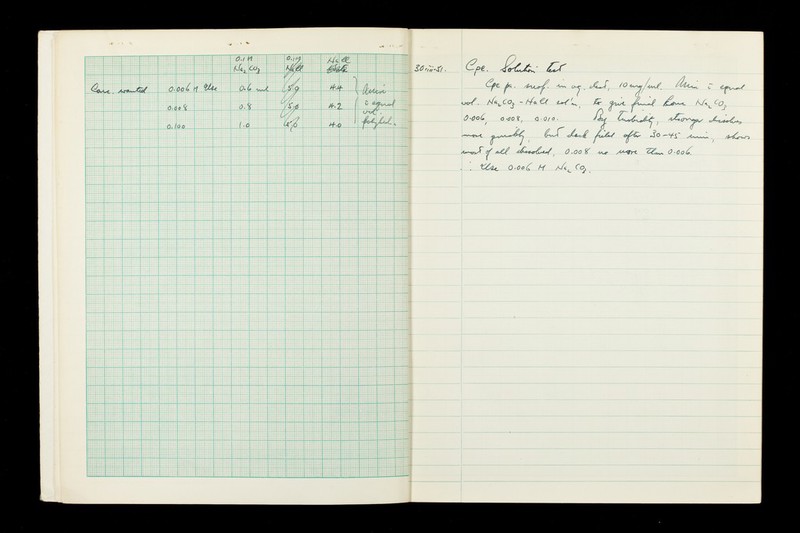 0.1 M
Na₂CO₃
0.1 M
NaCl
NaCl
Conc. wanted 0.006 M Use 0.6 ml 5.0 4.4 Mix
0.008 0.8 5.0 4.2 c̄ equal vol.
0.100 1.0 5.0 4.0
30-iii-51. Cpe. Solution test
Cpe pr. susp. in aq. dest, 10 mg/ml. Mix c̄ equal
vol. Na₂CO₃-NaCl sol'n, to give final conc Na₂CO₃
0.006, 0.008, 0.010. By turbidity, stronger dissolves
more quickly, but dark field after 30-45 min, shows
most of all dissolved, 0.008 no more than 0.006
∴ Use 0.006 M Na₂CO₃.